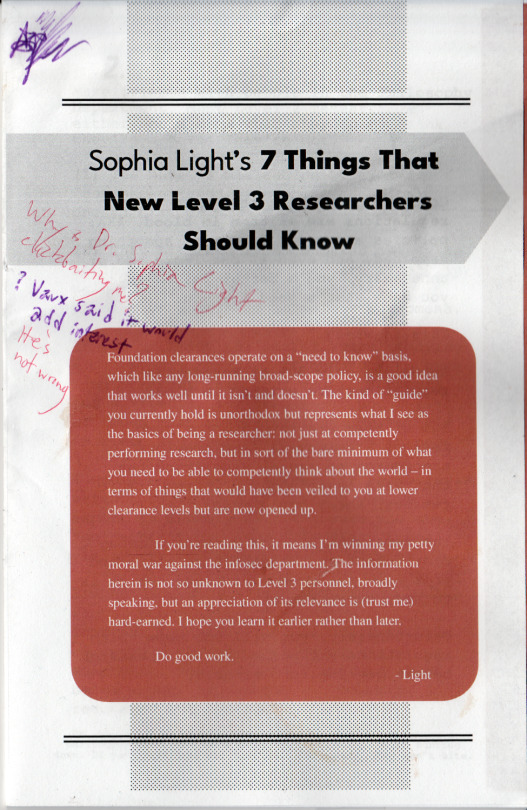 Sophia Light's 7 Things That
New Level 3 Researchers
Should Know
Why is Dr. Sophia Light
clickbaiting me?
? Vaux said it would
add interest
He's
not wrong
Foundation clearances operate on a “need to know” basis,
which like any long-running broad-scope policy, is a good idea
that works well until it isn't and doesn't. The kind of “guide”
you currently hold is unorthodox but represents what I see as
the basics of being a researcher: not just at competently
performing research, but in sort of the bare minimum of what
you need to be able to competently think about the world – in
terms of things that would have been veiled to you at lower
clearance levels but are now opened up.
If you're reading this, it means I'm winning my petty
moral war against the infosec department. The information
herein is not so unknown to Level 3 personnel, broadly
speaking, but an appreciation of its relevance is (trust me)
hard-earned. I hope you learn it earlier rather than later.
Do good work.
- Light